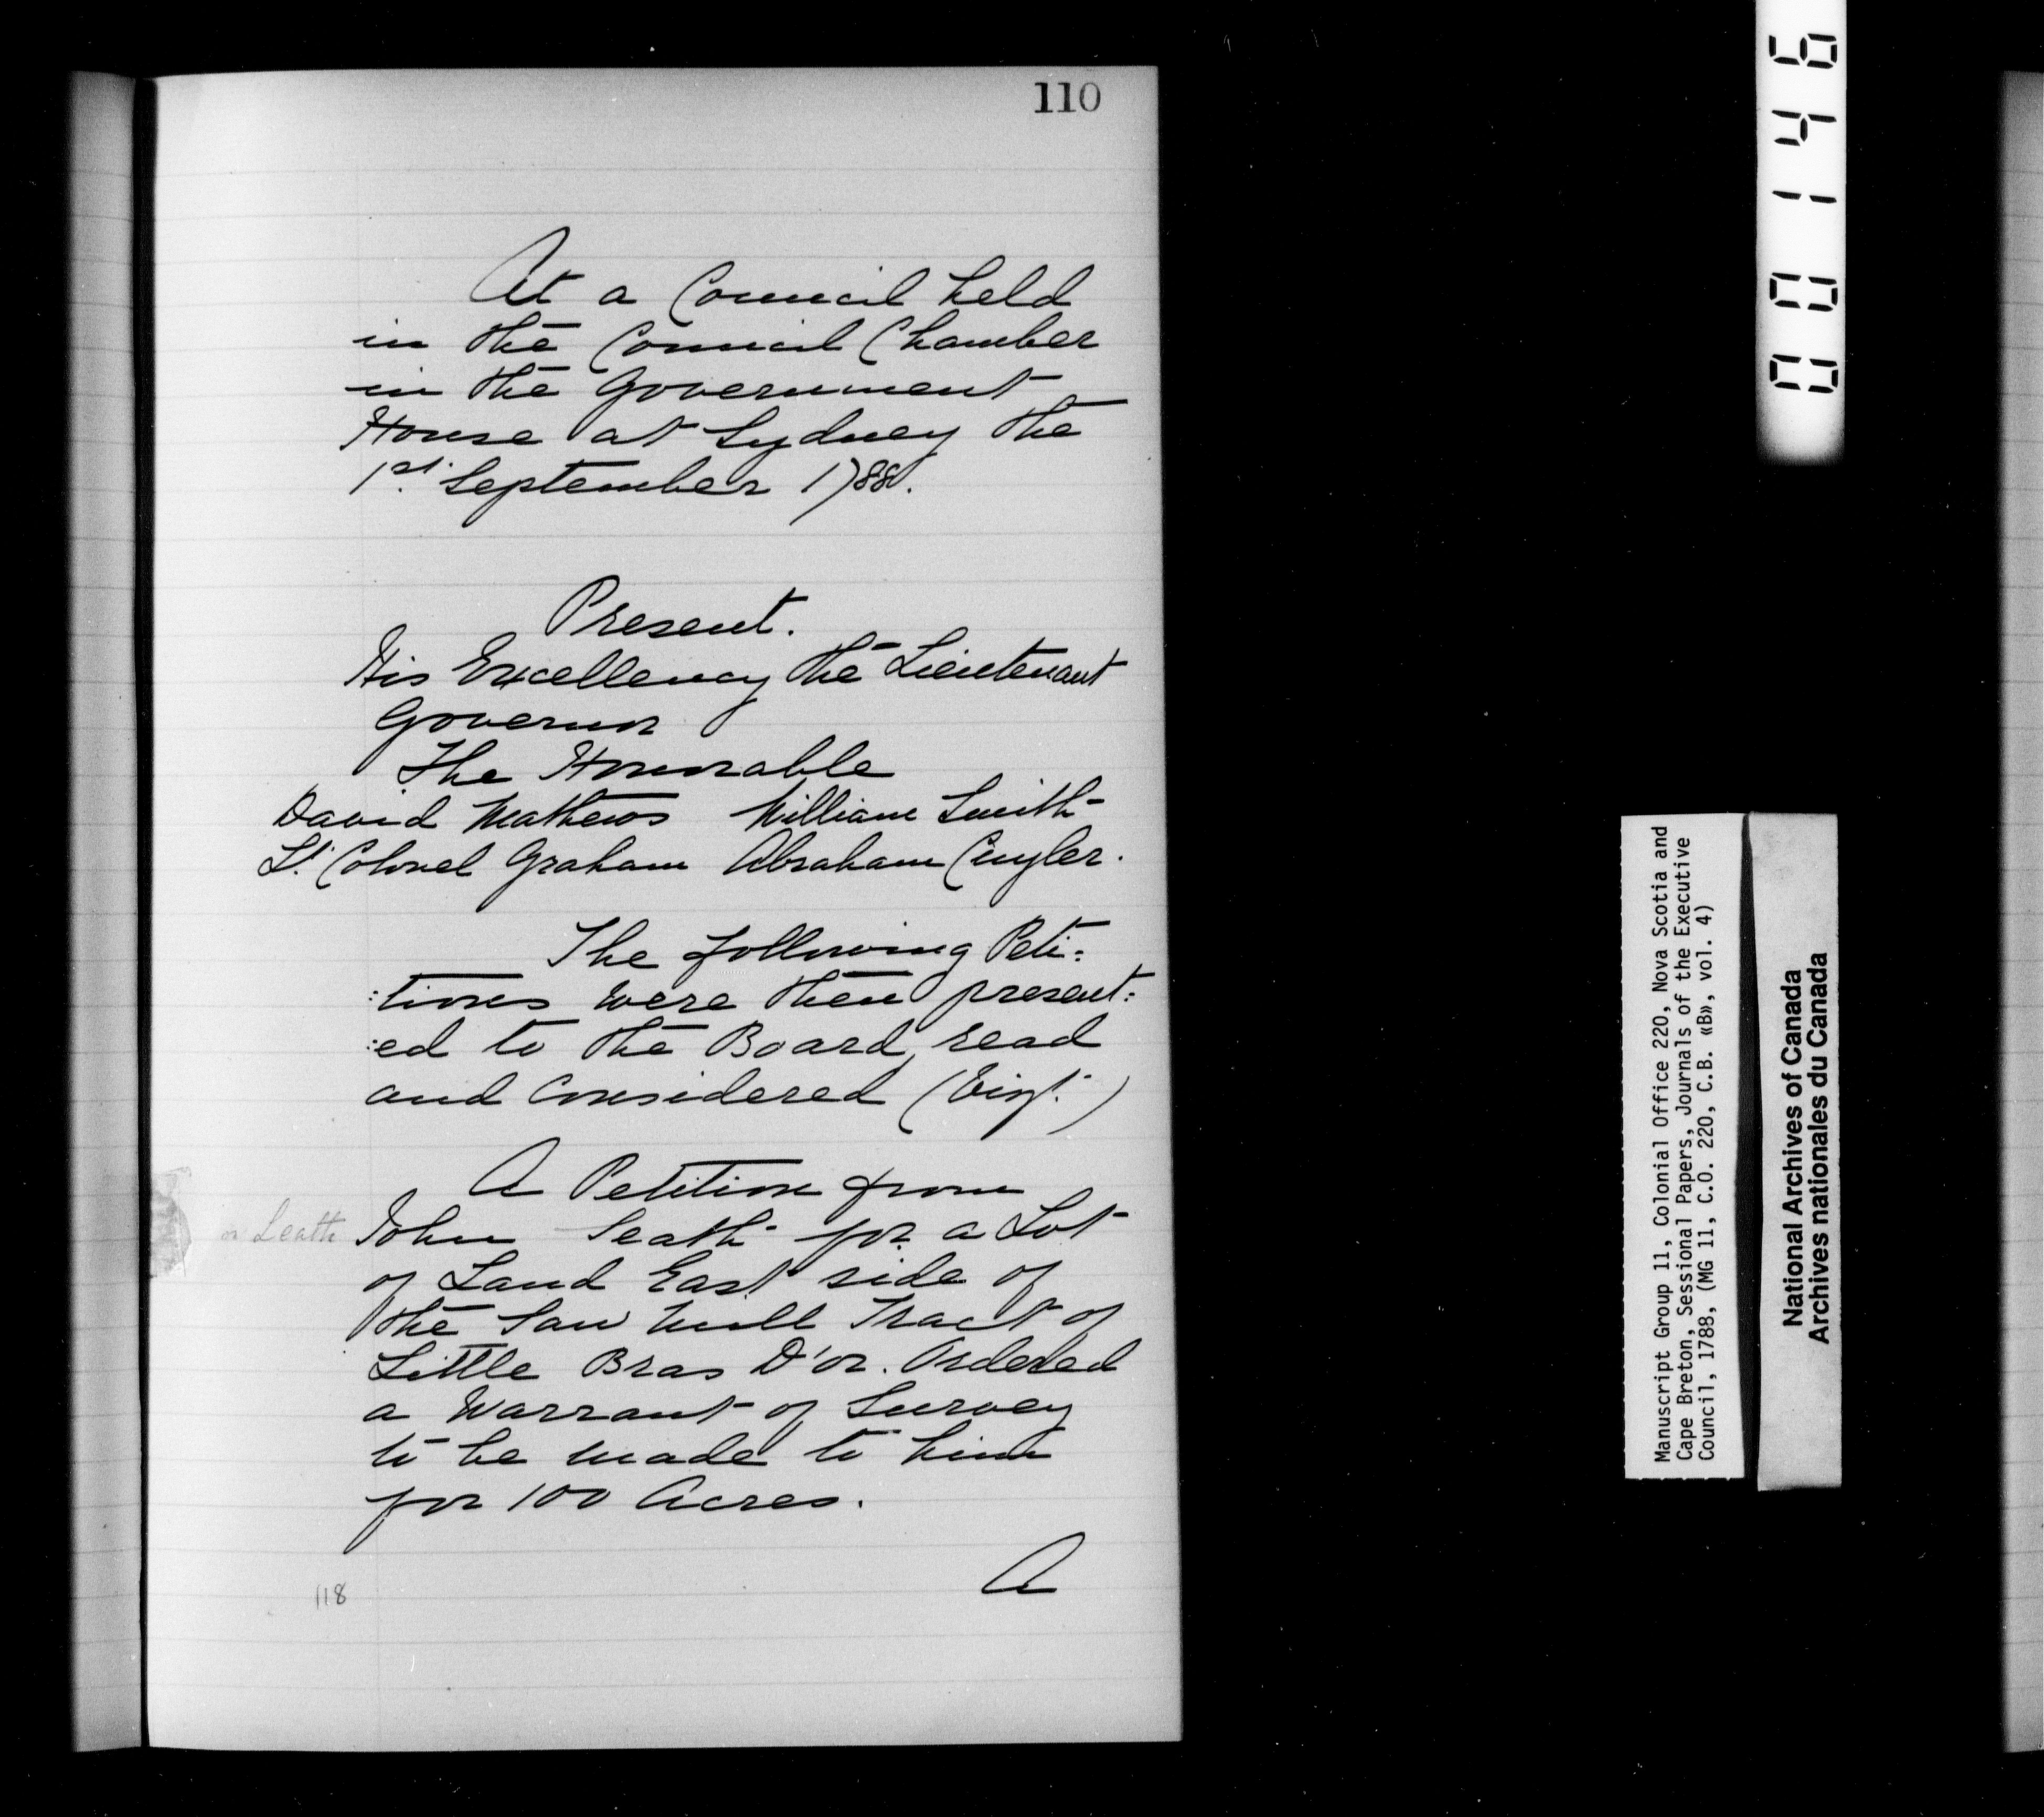 110
At a Council held
in the Council Chamber
in the Government
House at Sydney the
1st September 1788.
Present.
His Excellency the Lieutenant
Governor
The Honorable
David Mathews William Smith
Lt. Colonel Graham Abraham Cuyler.
The following Peti:
:tions were then present:
:ed to the Board, read
and Considered (Vizt.)
A Petition from
or Leath John Seath for a Lot
of Land East side of
the Saw Mill Tract of
Little Bras D'or. Ordered
a Warrant of Survey
to be made to him
for 100 Acres.
A
118
000146
Manuscript Group 11, Colonial Office 220, Nova Scotia and
Cape Breton, Sessional Papers, Journals of the Executive
Council, 1788, (MG 11, C.O. 220, C.B. «B», vol. 4)
National Archives of Canada
Archives nationales du Canada